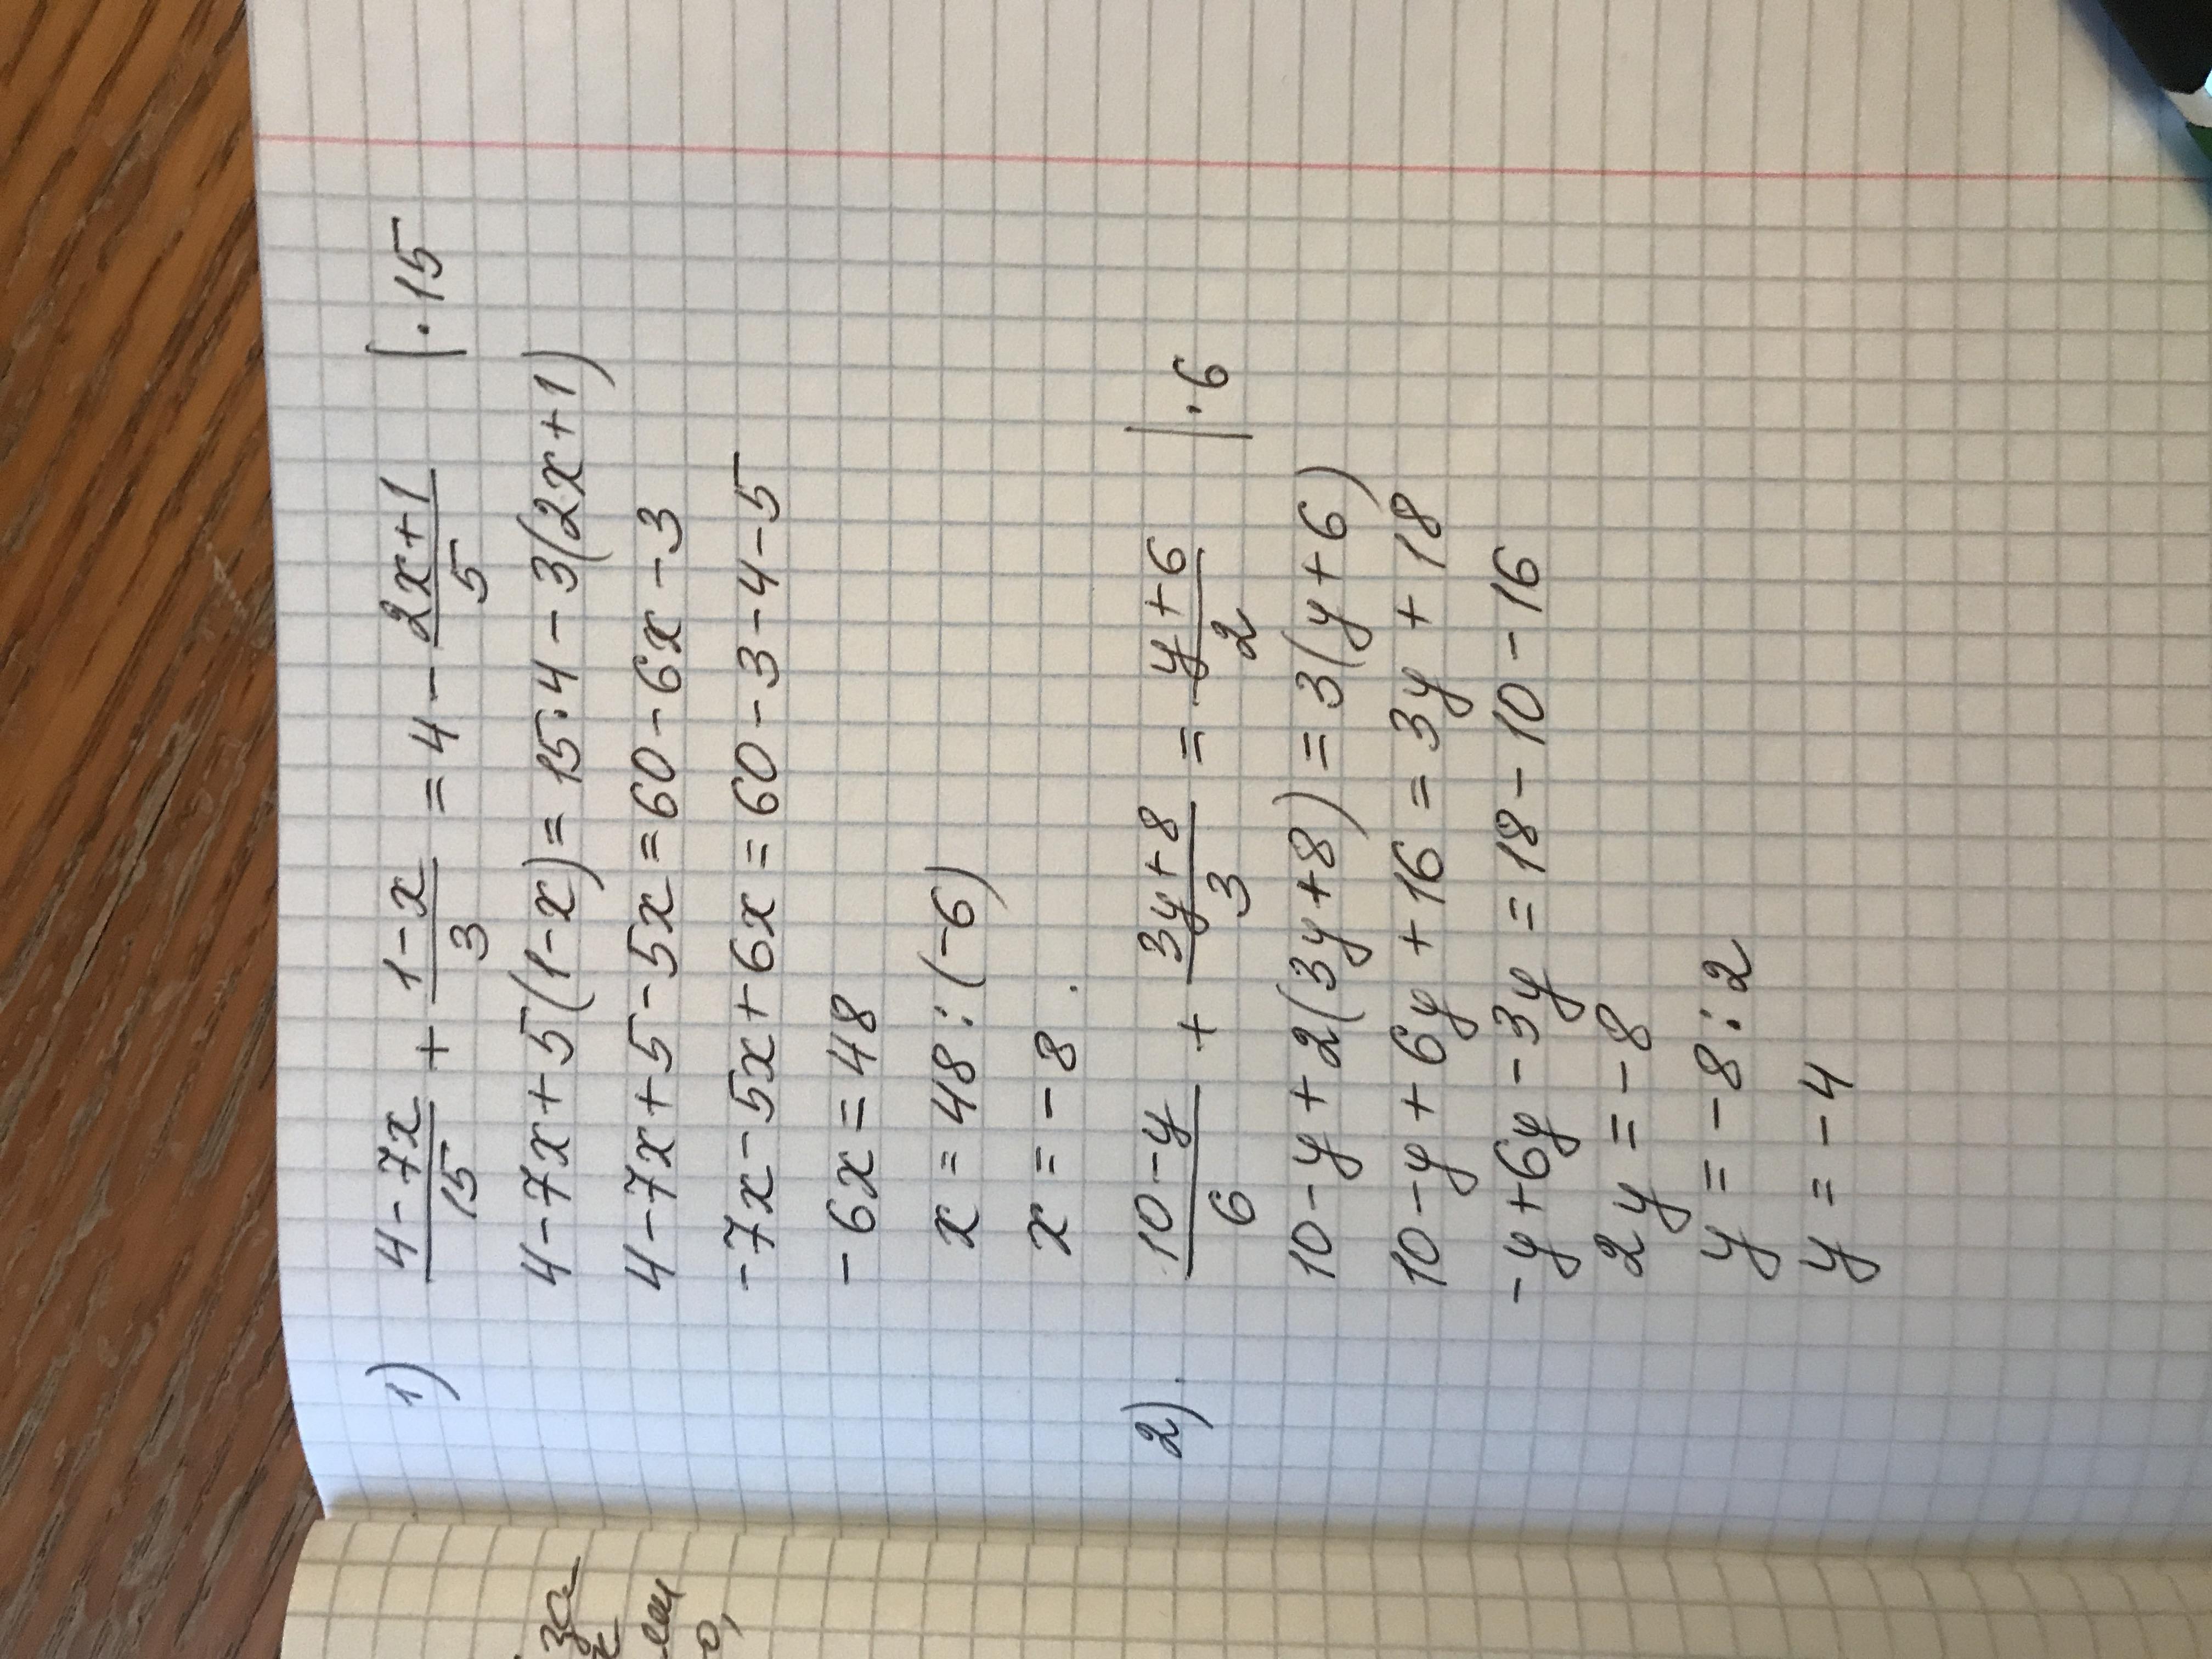 1) (4-7x)/15 + (1-x)/3 = 4 - (2x+1)/5 |·15
4-7x+5(1-x)=15·4-3(2x+1)
4-7x+5-5x=60-6x-3
-7x-5x+6x=60-3-4-5
-6x=48
x=48:(-6)
x=-8.
2). (10-y)/6 + (3y+8)/3 = (y+6)/2 |·6
10-y+2(3y+8)=3(y+6)
10-y+6y+16=3y+18
-y+6y-3y=18-10-16
2y=-8
y=-8:2
y=-4